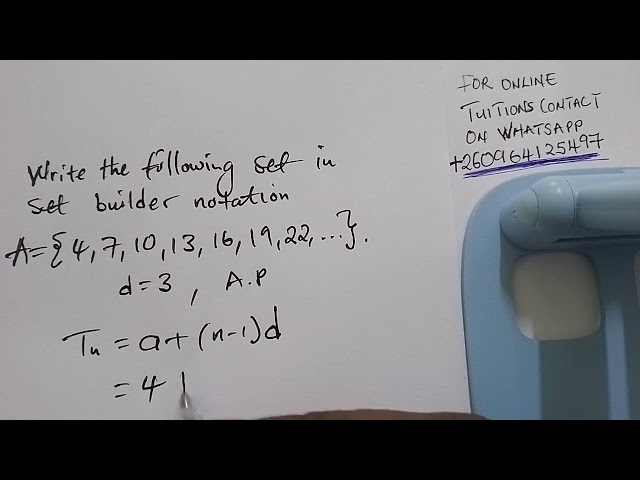 Write the following set in
set builder notation
A={4,7,10,13,16,19,22,...}.
d=3 , A.P
Tn = a+(n-1)d
= 4
FOR ONLINE
TUITIONS CONTACT
ON WHATSAPP
+260964125497